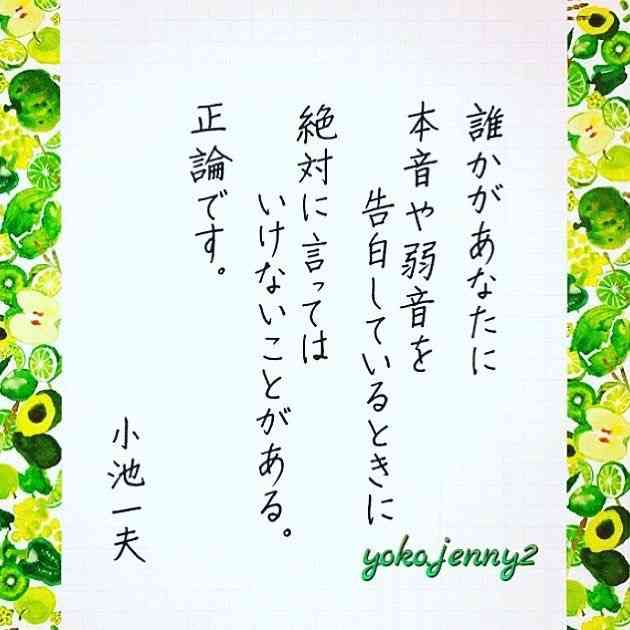 誰かがあなたに
本音や弱音を
告白しているときに
絶対に言っては
いけないことがある。
正論です。
小池一夫
yoko.jenny2